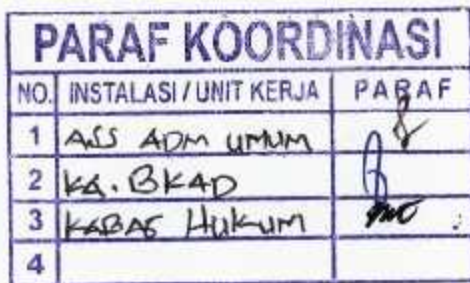 PARAF KOORDINASI
NO. INSTALASI / UNIT KERJA PARAF
1 ASS ADM UMUM
2 KA. BKAD
3 KABAG HUKUM
4